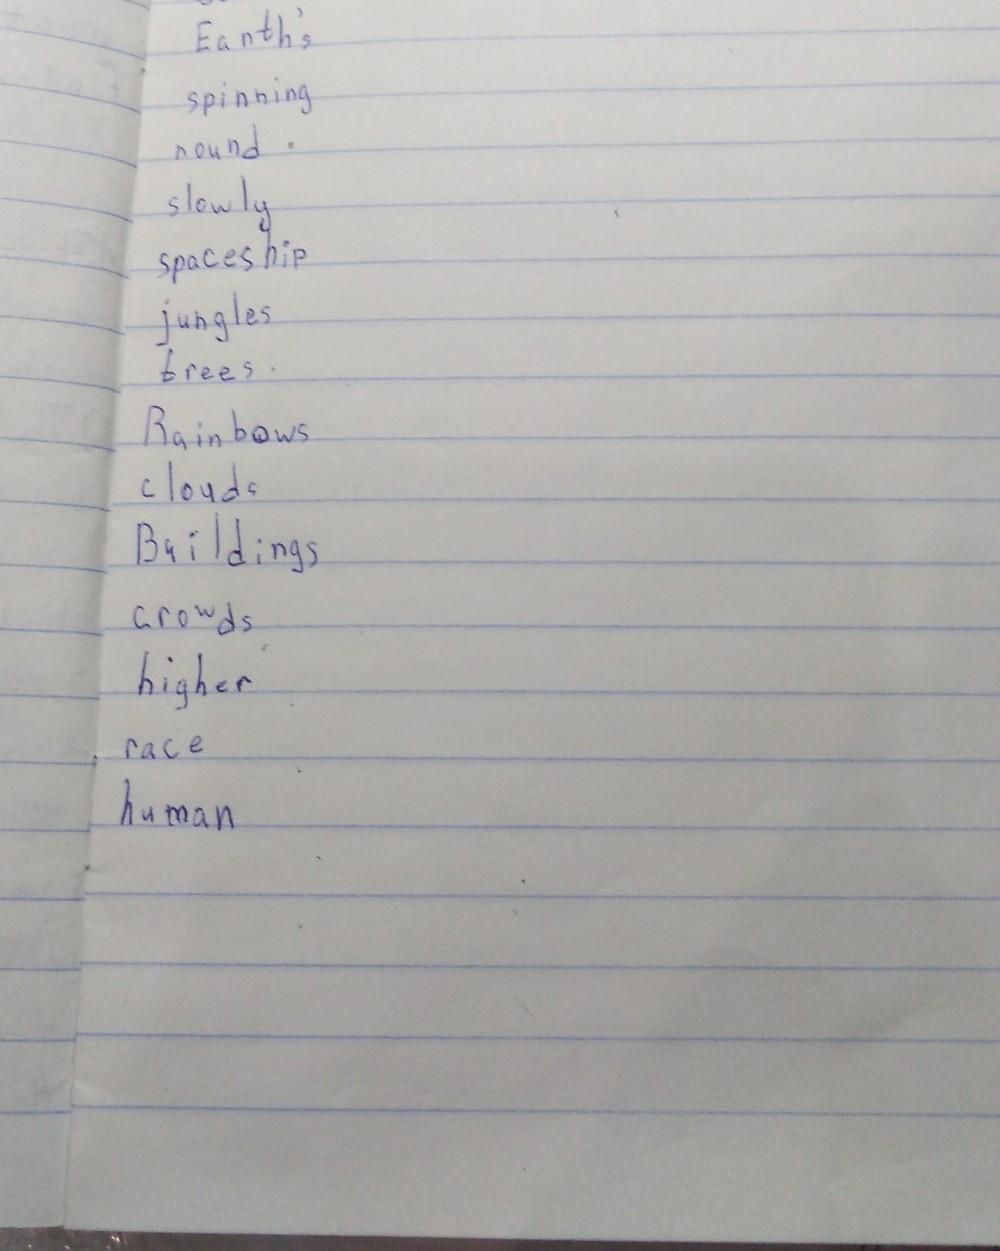 Earth's
spinning
round
slowly
spaceship
jungles
trees.
Rainbows
clouds
Buildings
crowds
higher
race
human